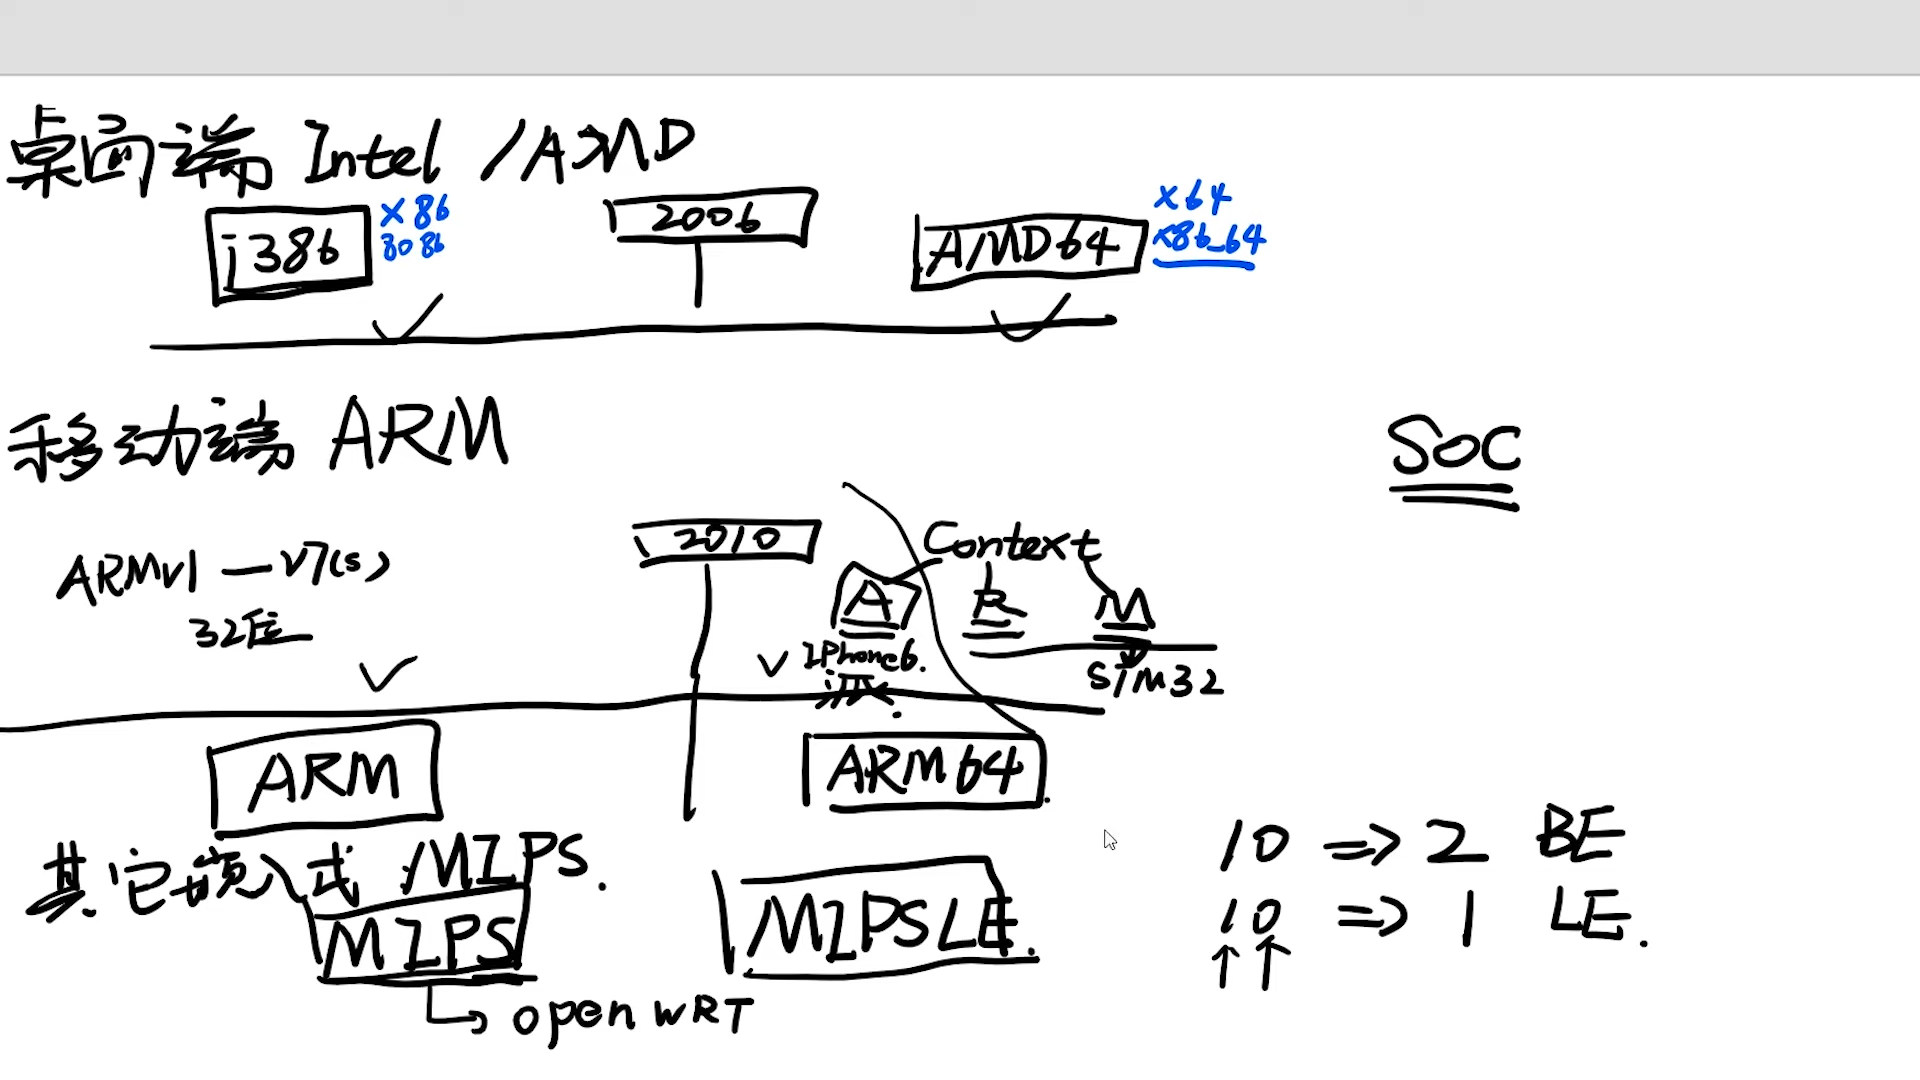 桌面端 Intel /AMD
i386 x86 8086
2006
AMD64 x64 x86_64
移动端 ARM
SOC
ARMv1 — v7(s)
32位
2010
Context
A R M
IPhone6.
STM32
ARM
ARM64
其它嵌入式 MIPS.
MIPS
MIPSLE.
open WRT
10 => 2 BE
10 => 1 LE.